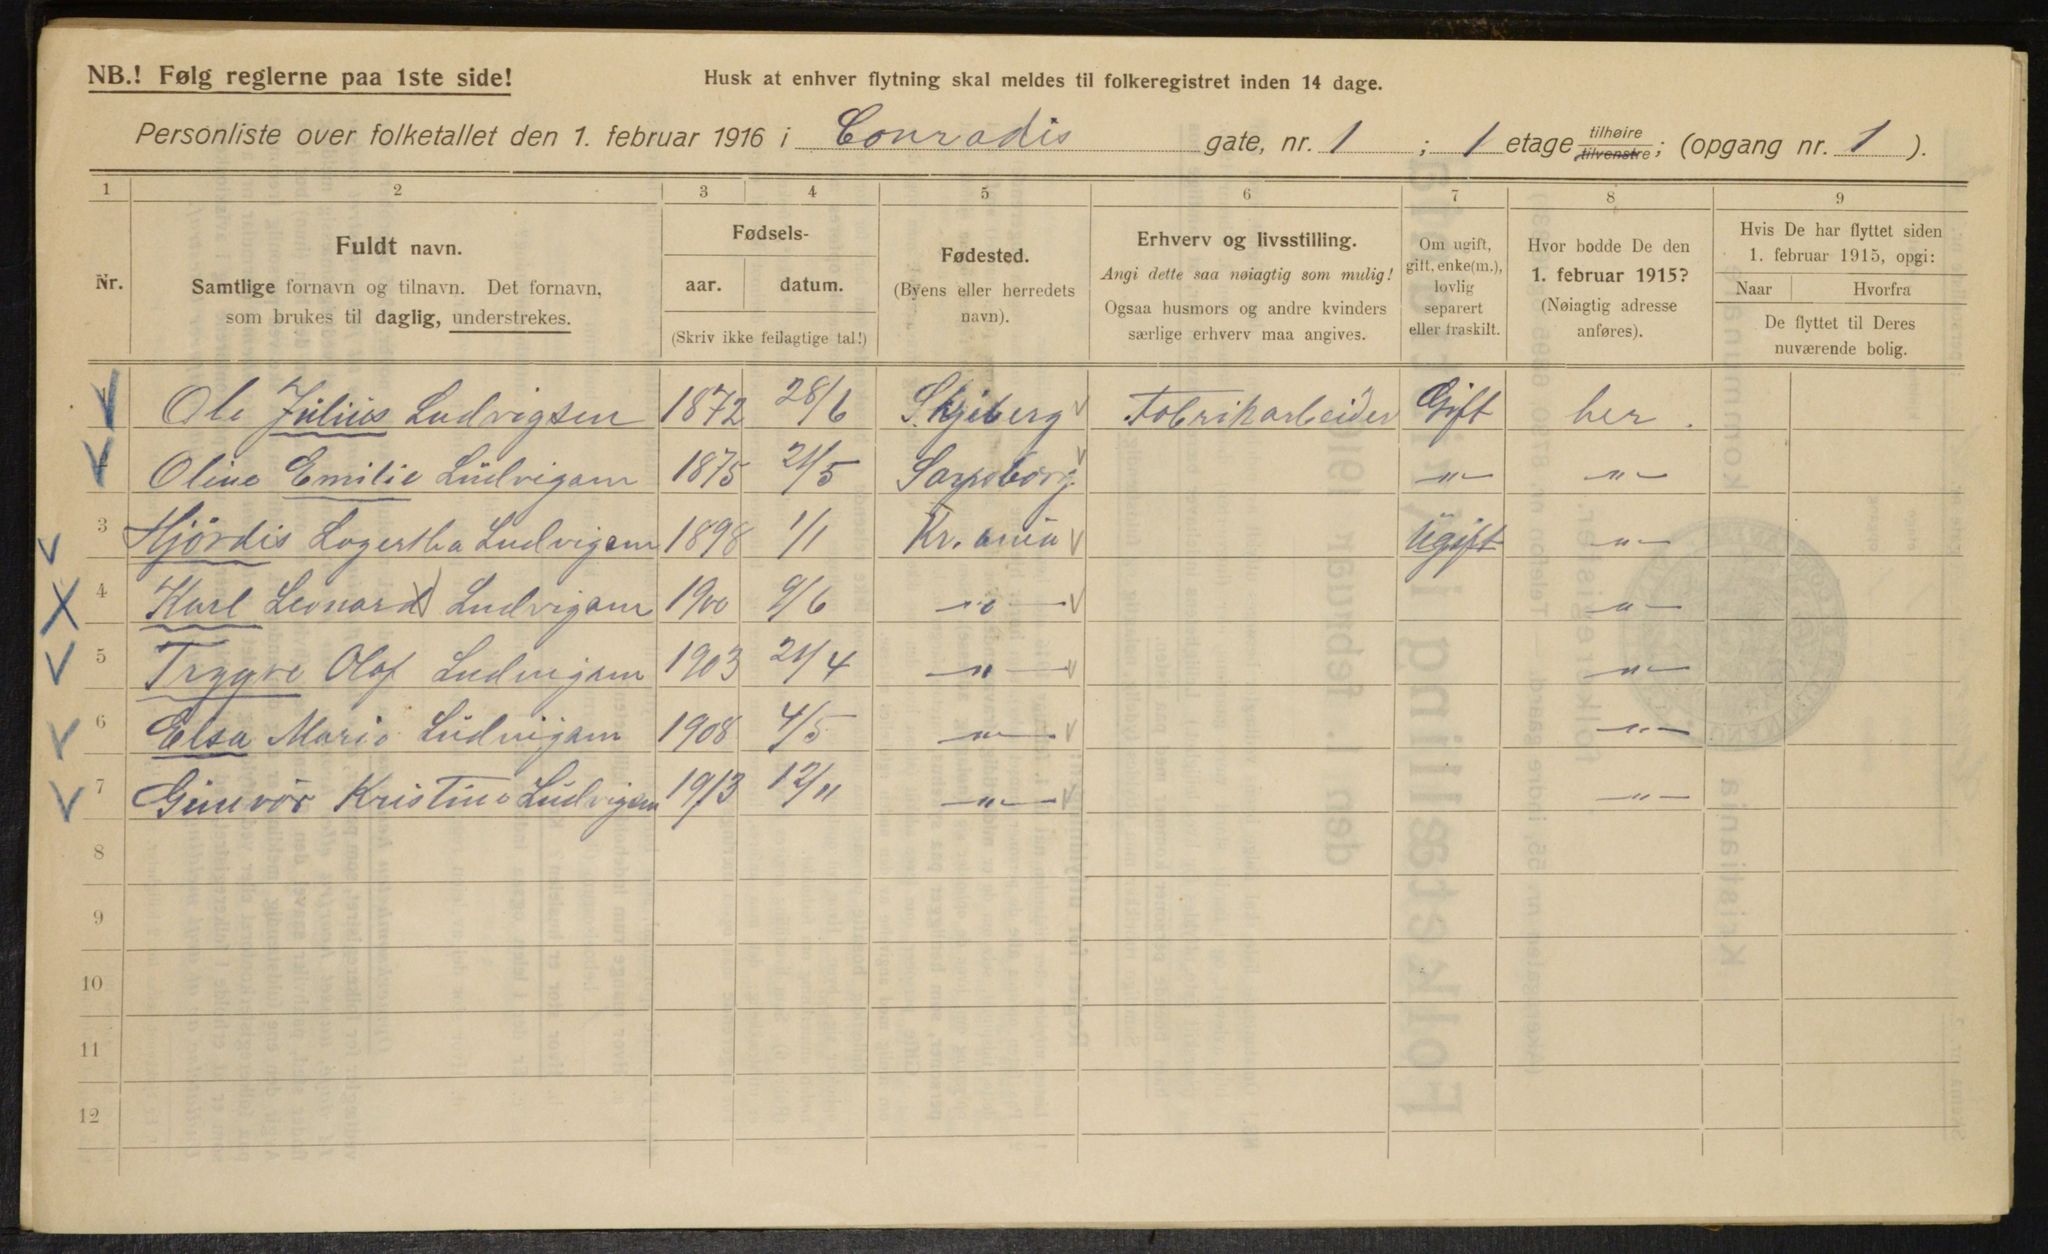 NB.! Følg reglerne paa 1ste side!
Husk at enhver flytning skal meldes til folkeregistret inden 14 dage.
Personliste over folketallet den 1. februar 1916 i Conradis gate, nr. 1 ; 1 etage tilhøire tilvenstre; (opgang nr. 1 ).
1 2 3 4 5 6 7 8 9
Nr.
Fuldt navn.
Samtlige fornavn og tilnavn. Det fornavn,
som brukes til daglig, understrekes.
Fødsels-
aar. datum.
(Skriv ikke feilagtige tal!)
Fødested.
(Byens eller herredets
navn).
Erhverv og livsstilling.
Angi dette saa nøiagtig som mulig!
Ogsaa husmors og andre kvinders
særlige erhverv maa angives.
Om ugift,
gift, enke(m.),
lovlig
separert
eller fraskilt.
Hvor bodde De den
1. februar 1915?
(Nøiagtig adresse
anføres).
Hvis De har flyttet siden
1. februar 1915, opgi:
Naar Hvorfra
De flyttet til Deres
nuværende bolig.
Ole Julius Ludvigsen 1872 28/6 Skjeberg Fabrikarbeider Gift her.
Oline Emilie Ludvigsen 1875 21/5 Sarpsborg „ „
3 Hjørdis Lagertha Ludvigsen 1898 1/1 Kr.ania Ugift „
4 Karl Leonard Ludvigsen 1900 9/6 „ „
5 Trygve Olaf Ludvigsen 1903 21/4 „ „
6 Elsa Marie Ludvigsen 1908 4/5 „ „
7 Gunvor Kristine Ludvigsen 1913 12/11 „ „
8
9
10
11
12